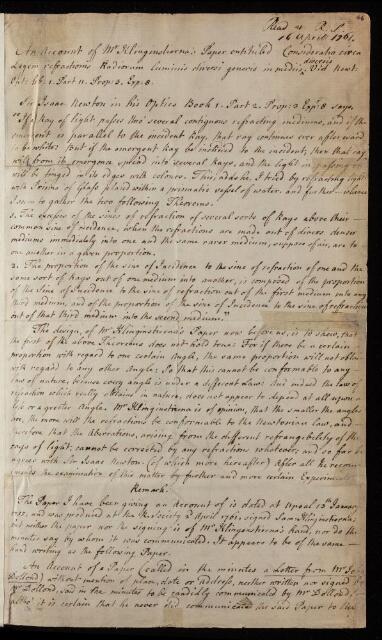 Read at R. S.
16 April 1761.
An Account of Mr Klingenstierna's Paper entituled Consideratio circa
Legem refractionis Radiorum luminis diversi generis in mediis diversis Vid Newt:
Opt: lib: 1. Part 11. Prop: 3. Exp: 8.
Sir Isaac Newton in his Optics Book 1. Part 2. Prop: 3 Expt: 8 says,
If a Ray of light passes thro several contiguous refracting mediums, and if the
emergent is parallel to the incident Ray, that ray continues ever afterward
to be white; But if the emergent Ray be inclined to the incident, then that ray
will from its emergence spread into several Rays, and the light in passing on
will be tinged in its edges with colours. This, adds he, I tried by refracting light
with Prisms of Glass placed within a prismatic vessel of water. and further whence
I seem to gather the two following Theorems.
1. The Excesses of the sines of refraction of several sorts of Rays above their
common sine of incidence, when the refractions are made out of divers denser
mediums immediately into one and the same rarer medium, suppose of air, are to
one another in a given proportion.
2. The proportion of the sine of Incidence to the sine of refraction of one and the
same sort of Rays out of one medium into another, is composed of the proportion
of the Sine of Incidence to the sine of refraction out of the first medium into any
third medium, and of the proportion of the sine of Incidence to the sine of refraction
out of that third medium into the second medium."
The design of Mr Klingenstierna's Paper now before us, is to shew, that
the first of the above Theorems does not hold true: For if there be a certain
proportion with regard to one certain Angle, the same proportion will not obtain
with regard to any other Angle; So that this cannot be conformable to any
law of nature, because every angle is under a different Law: And indeed the law of
refraction which really obtains in nature, does not appear to depend at all upon a
less or a greater Angle. Mr Klingenstierna is of opinion, that the smaller the angles
are, the more will the refractions be conformable to the Newtonian law, and
therefore that the Aberrations, arising from the different refrangibility of the
rays of light, cannot be corrected by any refractions whatever, and so far he
agrees with Sir Isaac Newton (of which more hereafter) After all he recom=
mends the examination of this matter by further and more certain Experiments
Remark.
The Paper I have been giving an Account of is dated at Upsal
and was produced at the Society April 1761, signed Sam: Klingenstierna;
but neither the paper nor the signing is of Mr Klingenstierna's hand, nor do the
minutes say by whom it was communicated. It appears to be of the same
hand writing as the following Paper.
An Account of a Paper (called in the minutes a Letter from Mr
Dollond) without mention of place, date or address, neither written nor signed by
Mr Dollond, said in the minutes to be candidly communicated by Mr Dollond,
altho' it is certain that he never did communicate the said Paper to the